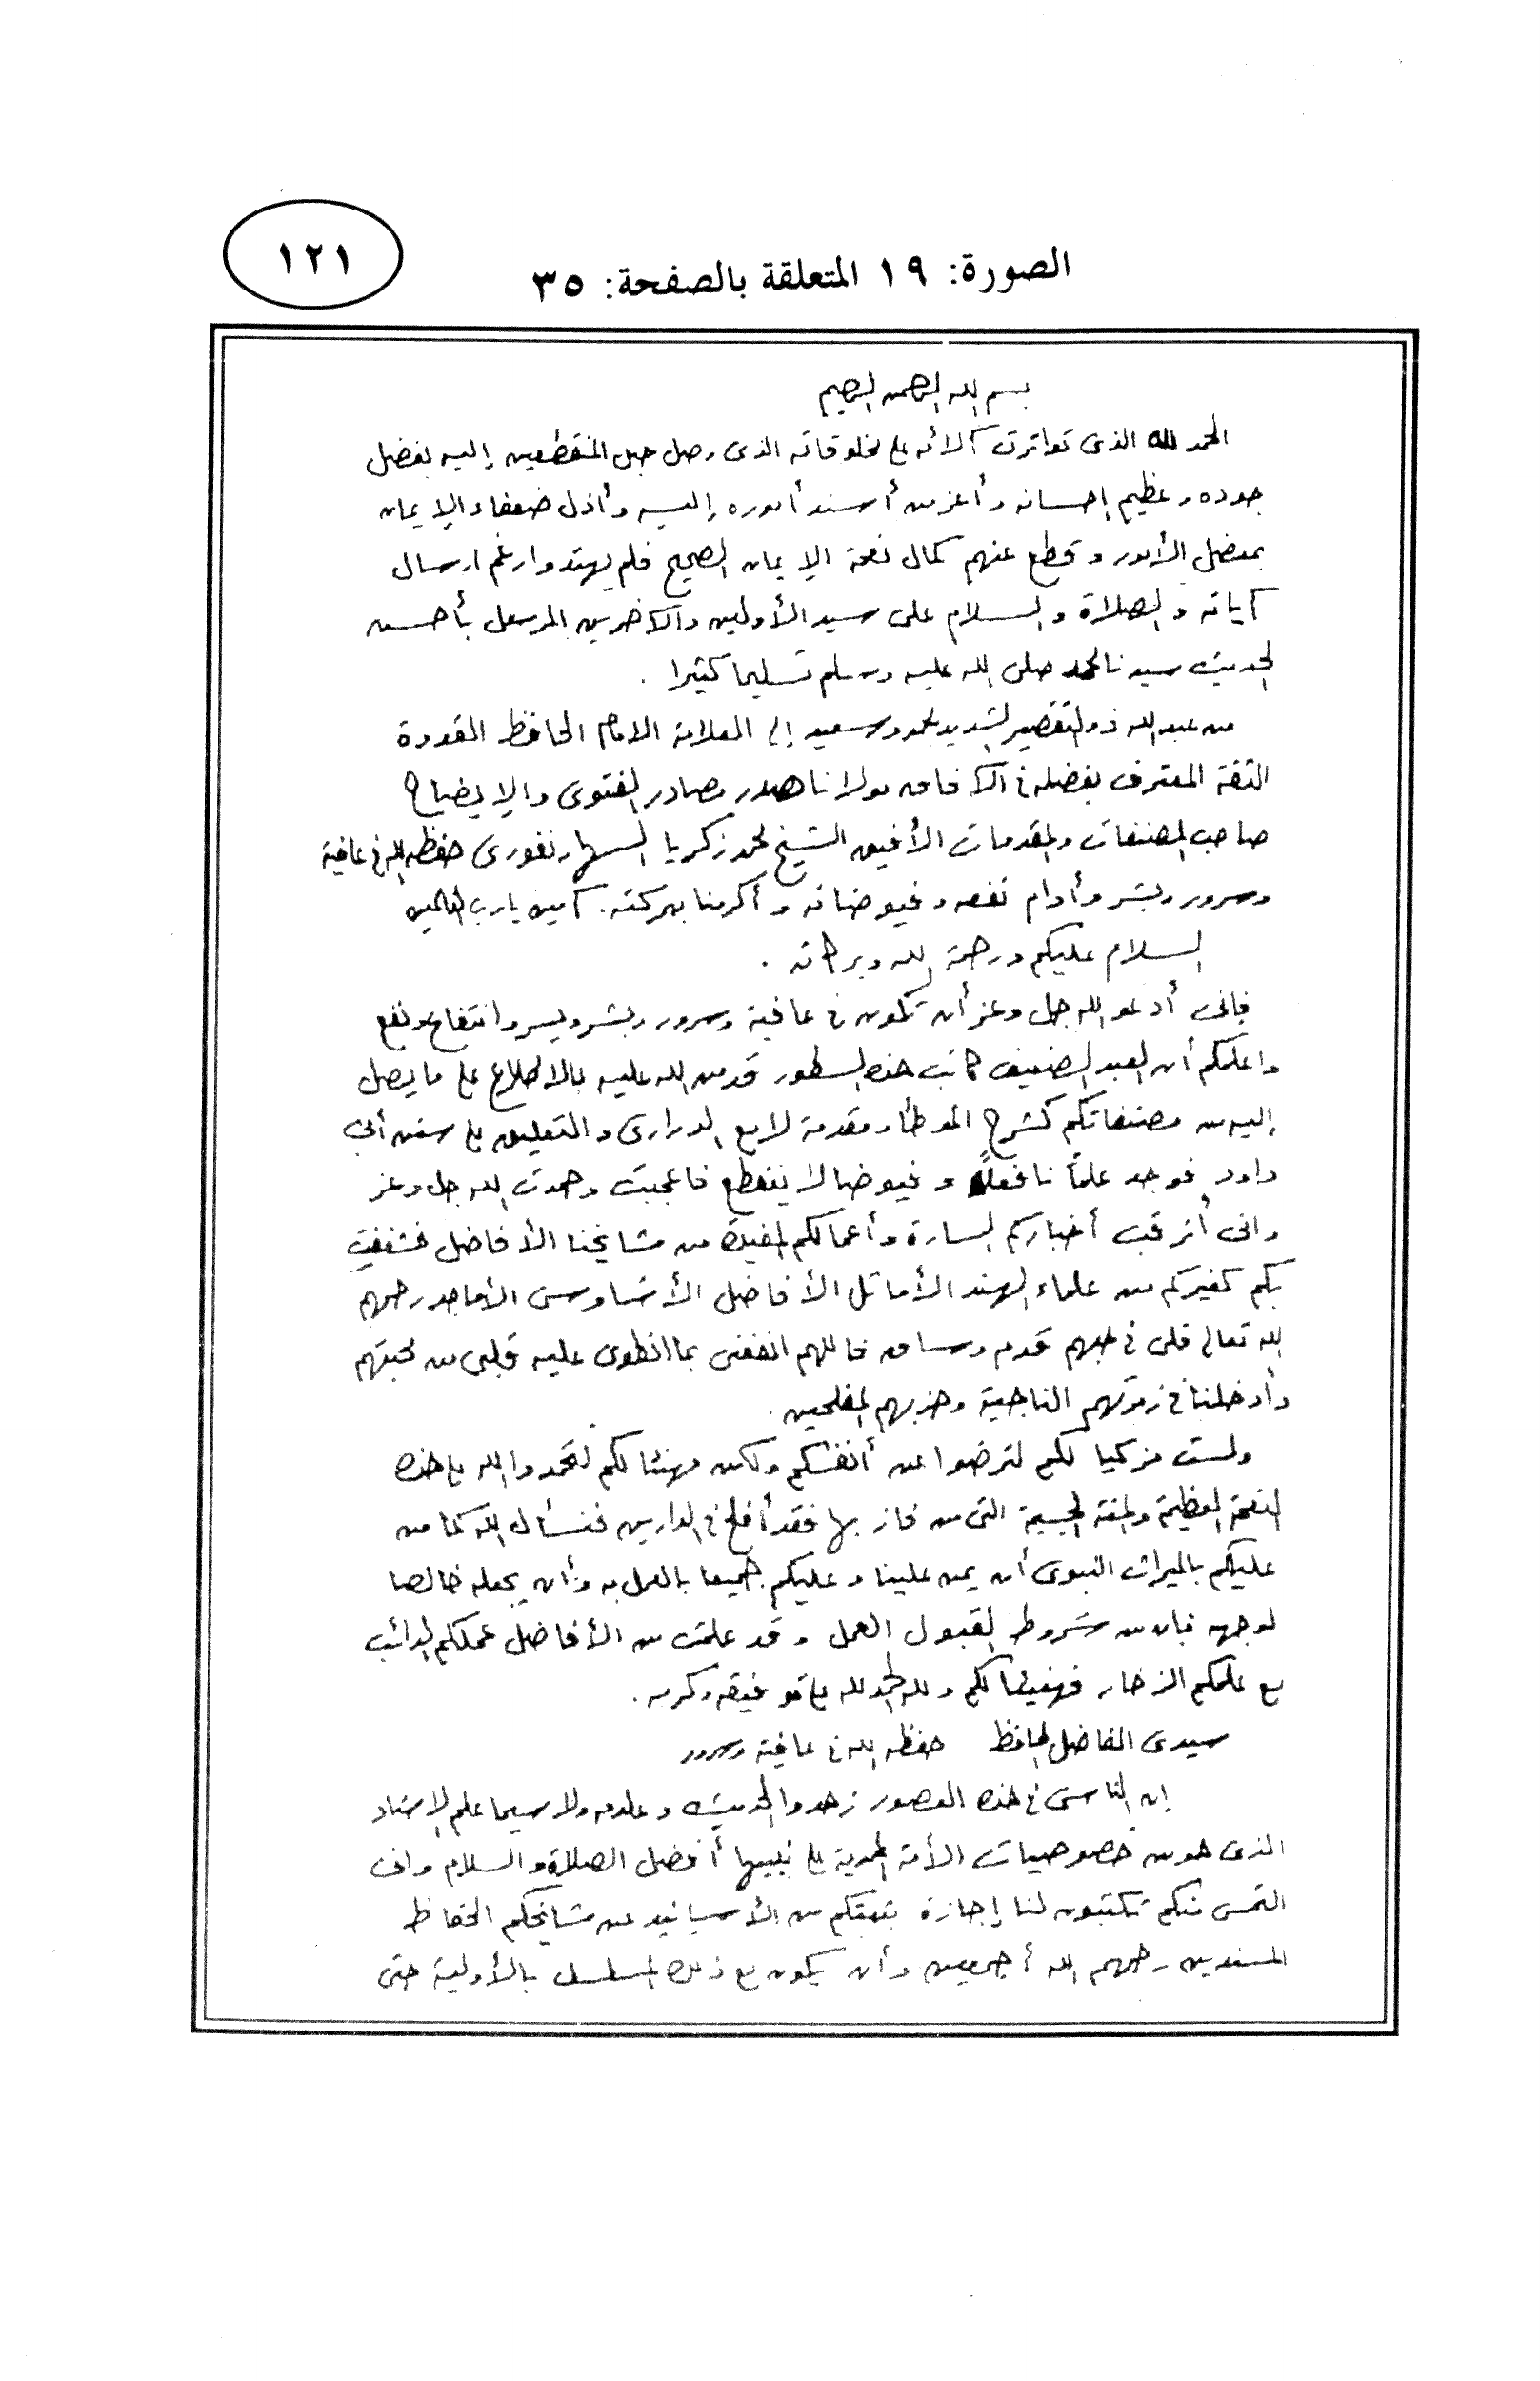 ١٢١
الصورة: ١٩ المتعلقة بالصفحة: ٣٥
بسم الله الرحمن الرحيم
الحمد لله الذى تواترت آلائه على مخلوقاته الذى وصل حبل المنقطعين إليه بفضل
جوده وعظيم إحسانه وأعز من أسند أموره إليه وأذل ضعفاء الإيمان
بمعضل الأمور وقطع عنهم كمال نعمة الإيمان الصحيح فلم يهتدوا رغم ارسال
آياته والصلاة والسلام على سيد الأولين والآخرين المرسل بأحسن
الحديث سيدنا محمد صلى الله عليه وسلم تسليما كثيرا .
من عبد الله ذو التقصير الشديد محمود سعيد إلى العلامة الامام الحافظ القدوة
الثقة المعترف بفضله فى الآفاق مولانا صدر مصادر الفتوى والإيضاح
صاحب المصنفات والمقدمات الأفيق الشيخ محمد زكريا السهارنفورى حفظه الله فى عافية
وسرور وبشر وأدام نفعه وفيوضاته وأكرمنا ببركته . آمين يارب العالمين
السلام عليكم ورحمة الله وبركاته .
فإنى أدعو الله جل وعز أن تكون فى عافية وسرور وبشر ويسر وانتفاع ونفع
واعلمكم أن العبد الضعيف كاتب هذه السطور قد من الله عليه بالاطلاع على ما يصل
إليه من مصنفاتكم كشرح الموطأ ومقدمة لامع الدرارى والتعليق على سنن أبى
داود فوجد علماً نافعاً وفيوضا لا ينقطع فأعجبت وحمدت الله جل وعز
وانى أترقب أخباركم السارة وأعمالكم المفيدة من مشايخنا الأفاضل فشغفت
بكم كغيركم من علماء الهند الأماثل الأفاضل الأشاوس الأماجد رحمهم
الله تعالى فلى فى حبهم قدم وساق فاللهم انفعنى بما انطوى عليه قلبى من محبتهم
وأدخلنا فى زمرتهم الناجية وحزبهم المفلحين .
ولست مزكيا لكم لترضوا عن أنفسكم ولكن مهنئا لكم لتحمدوا الله على هذه
النعمة العظيمة والمنة الجسيمة التى من فاز بها فقد أفلح فى الدارين فنسأل الله كما من
عليكم بالميراث النبوى أن يمن علينا وعليكم جميعا بالعمل به وأن يجعله خالصا
لوجهه فإن من شروط القبول العمل وقد علمت من الأفاضل عملكم الدائب
مع علمكم الزخار فهنيئا لكم ولله الحمد لله على توفيقه وكرمه .
سيدى الفاضل الحافظ حفظه الله فى عافية وسرور
إن الناس فى هذه العصور زهدوا الحديث وعلومه ولا سيما علم الإسناد
الذى هو من خصوصيات الأمة المحمدية على نبيها أفضل الصلاة والسلام وانى
التمس منكم تكتبون لنا إجازة بثبتكم من الأسانيد عن مشايخكم الحفاظ
المسندين رحمهم الله أجمعين وأن يكون مع ذلك المسلسل بالأولية حتى